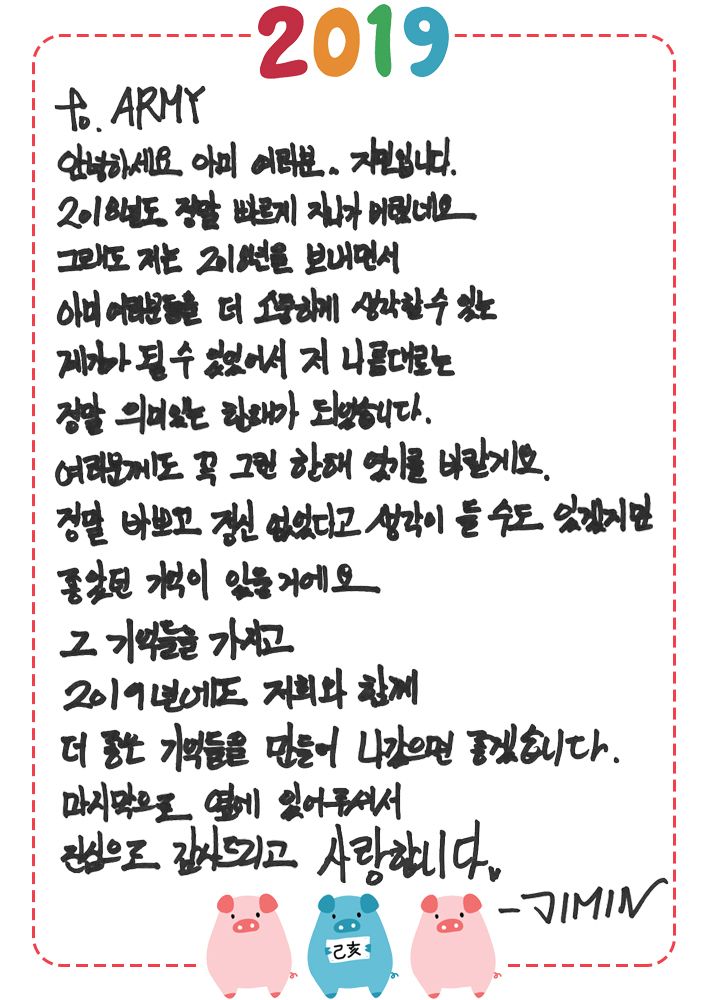 2019
to. ARMY
안녕하세요 아미 여러분.. 지민입니다.
2018년도 정말 빠르게 지나가 버렸네요
그래도 저는 2018년을 보내면서
아미 여러분들을 더 소중하게 생각할 수 있는
계기가 될 수 있었어서 저 나름대로는
정말 의미있는 한해가 되었습니다.
여러분께도 꼭 그런 한해 였기를 바랄게요.
정말 바쁘고 정신 없었다고 생각이 들 수도 있겠지만
좋았던 기억이 있을거에요
그 기억들을 가지고
2019년에도 저희와 함께
더 좋은 기억들을 만들어 나갔으면 좋겠습니다.
마지막으로 옆에 있어주셔서
진심으로 감사드리고 사랑합니다.
-JIMIN
己亥